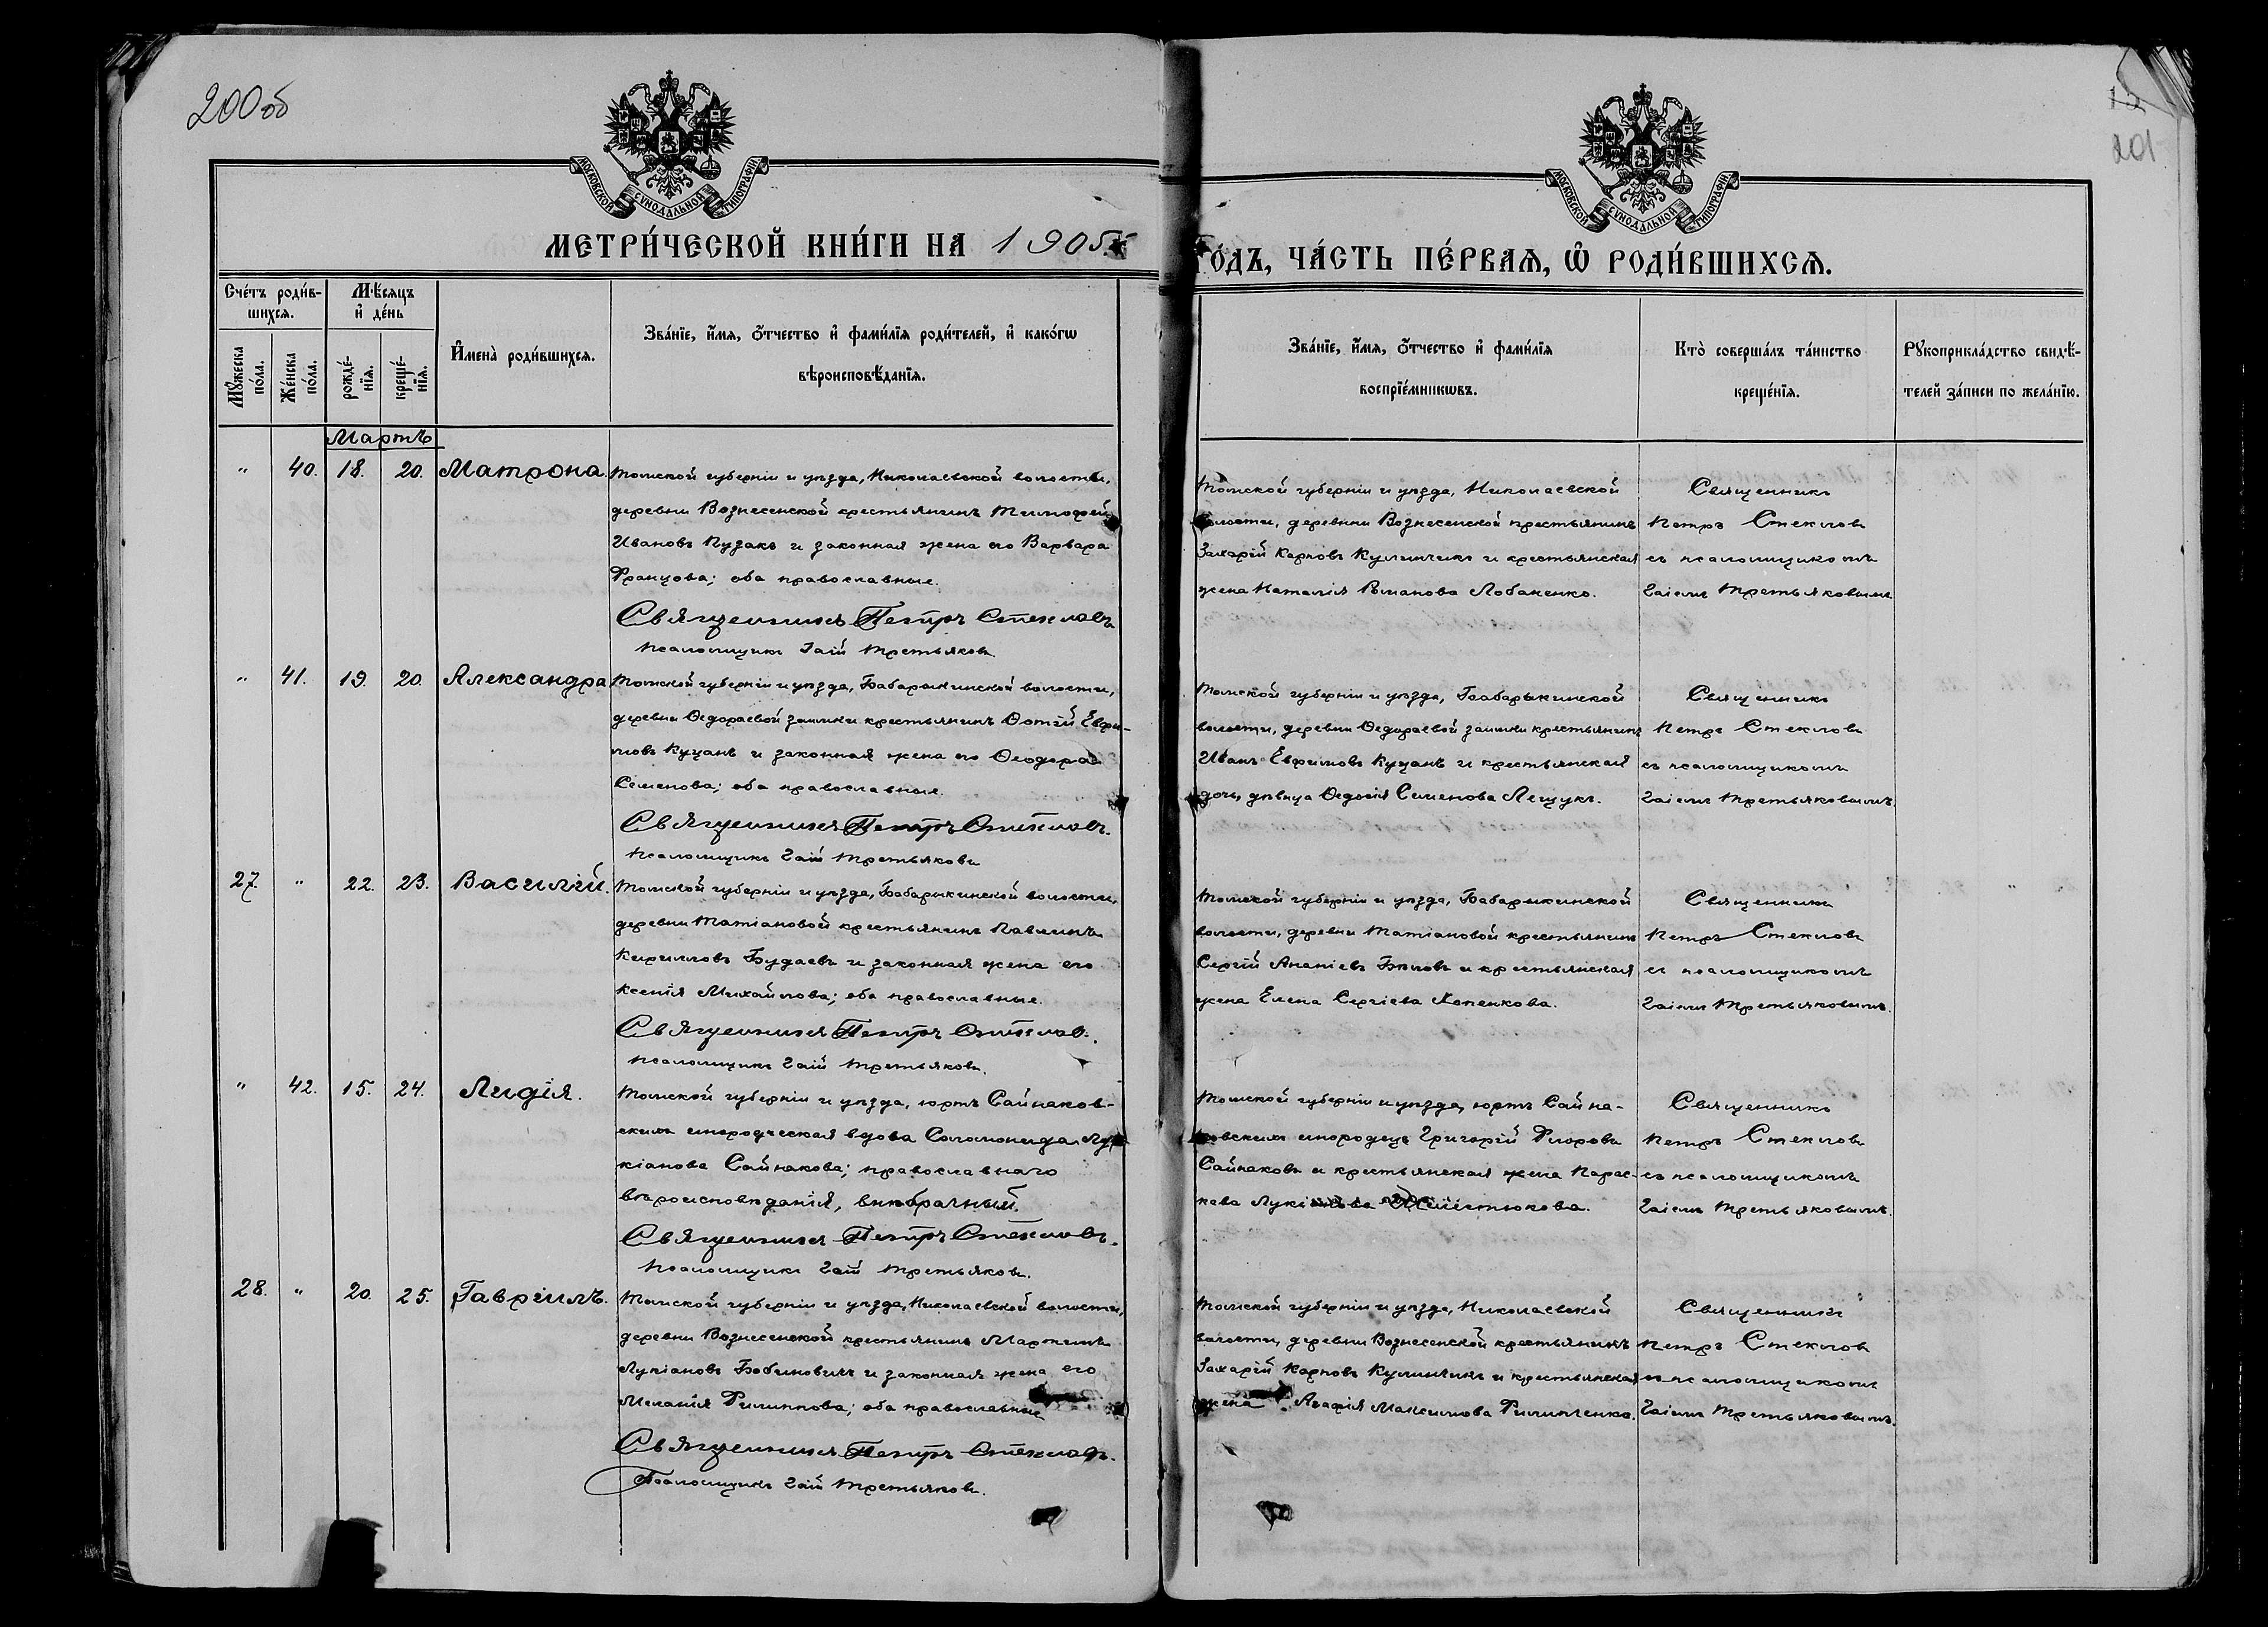 200об
15
201
МОСКОВСКОЙ СѴНОДАЛЬНОЙ ТИПОГРАФІИ
МОСКОВСКОЙ СѴНОДАЛЬНОЙ ТИПОГРАФІИ
МЕТРИ́ЧЕСКОЙ КНИ́ГИ НА 1905
ГО́ДЪ, ЧА́СТЬ ПЕ́РВАѦ, Ѡ РОДИ́ВШИХСѦ.
Сче́тъ роди́в-
шихсѧ.
Мѣ́сѧцъ
и҆ де́нь
Мꙋ́жеска по́ла.
Же́нска по́ла.
рожде́-нїѧ.
креще́-нїѧ.
И҆мена̀ роди́вшихсѧ.
Зва́нїе, и҆́мѧ, ѻ҆́тчество и҆ фами́лїѧ роди́телей, и҆ како́гѡ
вѣроисповѣ́данїѧ.
Зва́нїе, и҆́мѧ, ѻ҆́тчество и҆ фами́лїѧ
воспрїе́мникѡвъ.
Кто̀ соверша́лъ та́инство
креще́нїѧ.
Рꙋкоприкла́дство свидѣ́-
телей за́писи по жела́нїю.
Мартъ
" 40. 18. 20. Матрона.
Томской губерніи и уѣзда, Николаевской волости,
деревни Вознесенской крестьянинъ Тимофей
Ивановъ Пузакъ и законная жена его Варвара
Францова; оба православные.
Священникъ Петръ Стекловъ
Псаломщикъ Гаій Третьяковъ.
Томской губерніи и уѣзда, Николаевской
волости, деревни Вознесенской крестьянинъ
Захарій Карповъ Кулинчикъ и крестьянская
жена Наталія Романова Лобаненко.
Священникъ
Петръ Стекловъ
съ псаломщикомъ
Гаіемъ Третьяковымъ
" 41. 19. 20. Александра
Томской губерніи и уѣзда, Бабарыкинской волости,
деревни Ѳедораевой заимки крестьянинъ Фотій Евфи-
мовъ Куцанъ и законная жена его Ѳеодора
Семенова; оба православные.
Священникъ Петръ Стекловъ.
Псаломщикъ Гаій Третьяковъ
Томской губерніи и уѣзда, Бабарыкинской
волости, деревни Ѳедораевой заимки крестьянинъ
Иванъ Евфимовъ Куцанъ и крестьянская
дочь, дѣвица Ѳедосія Семенова Лещукъ.
Священникъ
Петръ Стекловъ
съ псаломщикомъ
Гаіемъ Третьяковымъ.
27. " 22. 23. Василій.
Томской губерніи и уѣзда, Бабарыкинской волости,
деревни Татіановой крестьянинъ Павлинъ
Кирилловъ Будаевъ и законная жена его
Ксенія Михайлова; оба православные.
Священникъ Петръ Стекловъ.
Псаломщикъ Гаій Третьяковъ.
Томской губерніи и уѣзда, Бабарыкинской
волости, деревни Татіановой крестьянинъ
Сергій Ананіевъ Бѣловъ и крестьянская
жена Елена Сергіева Копенкова.
Священникъ
Петръ Стекловъ
съ псаломщикомъ
Гаіемъ Третьяковымъ.
" 42. 15. 24. Лидія.
Томской губерніи и уѣзда, юртъ Сайнаков-
скихъ инородческая вдова Соломонида Лу-
кіанова Сайнакова; православнаго
вѣроисповѣданія, внѣбрачный.
Священникъ Петръ Стекловъ.
Псаломщикъ Гаій Третьяковъ.
Томской губерніи и уѣзда, юртъ Сайна-
ковскихъ инородецъ Григорій Флоровъ
Сайнаковъ и крестьянская жена Парас-
кева
Священникъ
Петръ Стекловъ
съ псаломщикомъ
Гаіемъ Третьяковымъ.
28. " 20. 25. Гавріилъ.
Томской губерніи и уѣзда, Николаевской волости,
деревни Вознесенской крестьянинъ Мартинъ
Лукіановъ Бобиновичъ и законная жена его
Меланія Филиппова; оба православные
Священникъ Петръ Стекловъ.
Псаломщикъ Гаій Третьяковъ.
Томской губерніи и уѣзда, Николаевской
волости, деревни Вознесенской крестьянинъ
Захарій Карповъ Кулинчикъ и крестьянская
жена Агафія Максимова Филипченко.
Священникъ
Петръ Стекловъ
съ псаломщикомъ
Гаіемъ Третьяковымъ.